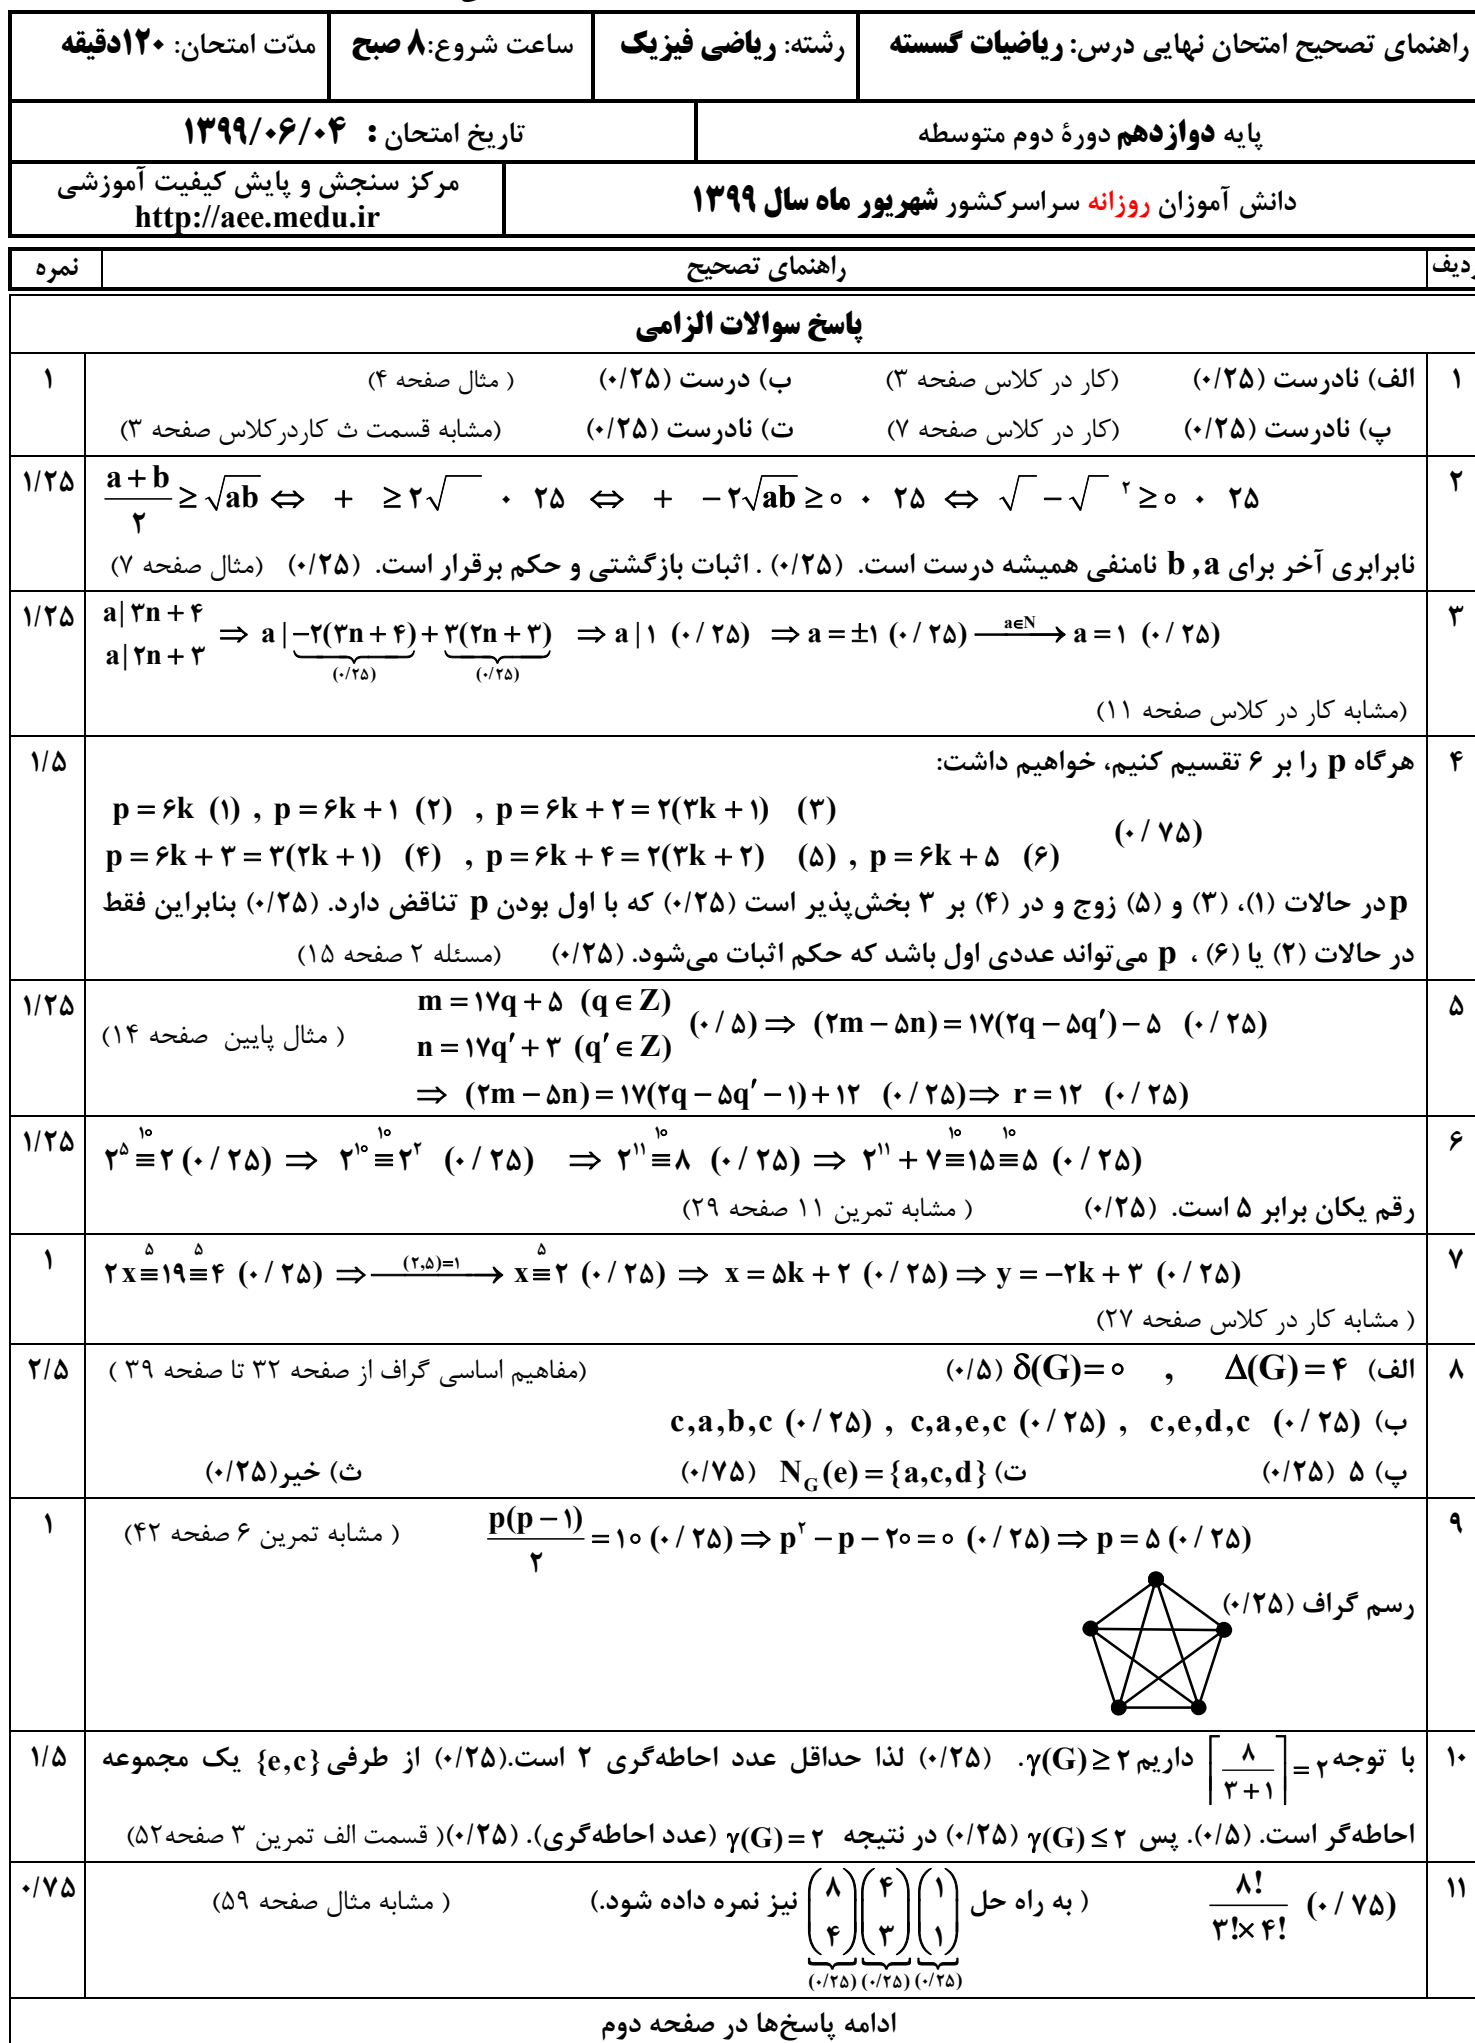 راهنمای تصحیح امتحان نهایی درس: ریاضیات گسسته	رشته: ریاضی فیزیک	ساعت شروع:۸ صبح	مدّت امتحان: ۱۲۰دقیقه
پایه دوازدهم دورهٔ دوم متوسطه	تاریخ امتحان : ۱۳۹۹/۰۶/۰۴
دانش آموزان روزانه سراسرکشور شهریور ماه سال ۱۳۹۹	مرکز سنجش و پایش کیفیت آموزشی
http://aee.medu.ir
ردیف	راهنمای تصحیح	نمره
پاسخ سوالات الزامی
۱	الف) نادرست (۰/۲۵) (کار در کلاس صفحه ۳) ب) درست (۰/۲۵) ( مثال صفحه ۴)	۱
پ) نادرست (۰/۲۵) (کار در کلاس صفحه ۷) ت) نادرست (۰/۲۵) (مشابه قسمت ث کاردرکلاس صفحه ۳)
۲	(a+b)/۲ ≥ √ab ⇔ + ≥ ۲√ ۰ ۲۵ ⇔ + −۲√ab ≥ ۰ ۰ ۲۵ ⇔ √ − √ ² ≥ ۰ ۰ ۲۵	۱/۲۵
نابرابری آخر برای b , a نامنفی همیشه درست است. (۰/۲۵) . اثبات بازگشتی و حکم برقرار است. (۰/۲۵) (مثال صفحه ۷)
۳	a|۳n+۴ , a|۲n+۳ ⇒ a | −۲(۳n+۴) (۰/۲۵) + ۳(۲n+۳) (۰/۲۵) ⇒ a|۱ (۰/۲۵) ⇒ a = ±۱ (۰/۲۵) —a∈N→ a = ۱ (۰/۲۵)	۱/۲۵
(مشابه کار در کلاس صفحه ۱۱)
۴	هرگاه p را بر ۶ تقسیم کنیم، خواهیم داشت:	۱/۵
p = ۶k (۱) , p = ۶k+۱ (۲) , p = ۶k+۲ = ۲(۳k+۱) (۳)
(۰/۷۵)
p = ۶k+۳ = ۳(۲k+۱) (۴) , p = ۶k+۴ = ۲(۳k+۲) (۵) , p = ۶k+۵ (۶)
p در حالات (۱)، (۳) و (۵) زوج و در (۴) بر ۳ بخش‌پذیر است (۰/۲۵) که با اول بودن p تناقض دارد. (۰/۲۵) بنابراین فقط
در حالات (۲) یا (۶) ، p می‌تواند عددی اول باشد که حکم اثبات می‌شود. (۰/۲۵) (مسئله ۲ صفحه ۱۵)
۵	m = ۱۷q+۵ (q∈Z)	۱/۲۵
n = ۱۷q′+۳ (q′∈Z) (۰/۵) ⇒ (۲m−۵n) = ۱۷(۲q−۵q′)−۵ (۰/۲۵) ( مثال پایین صفحه ۱۴)
⇒ (۲m−۵n) = ۱۷(۲q−۵q′−۱)+۱۲ (۰/۲۵) ⇒ r = ۱۲ (۰/۲۵)
۶	۲⁵ ≡¹⁰ ۲ (۰/۲۵) ⇒ ۲¹⁰ ≡¹⁰ ۲² (۰/۲۵) ⇒ ۲¹¹ ≡¹⁰ ۸ (۰/۲۵) ⇒ ۲¹¹+۷ ≡¹⁰ ۱۵ ≡¹⁰ ۵ (۰/۲۵)	۱/۲۵
رقم یکان برابر ۵ است. (۰/۲۵) ( مشابه تمرین ۱۱ صفحه ۲۹)
۷	۲x ≡⁵ ۱۹ ≡⁵ ۴ (۰/۲۵) ⇒ —(۲,۵)=۱→ x ≡⁵ ۲ (۰/۲۵) ⇒ x = ۵k+۲ (۰/۲۵) ⇒ y = −۲k+۳ (۰/۲۵)	۱
( مشابه کار در کلاس صفحه ۲۷)
۸	الف) Δ(G) = ۴ , δ(G) = ۰ (۰/۵) (مفاهیم اساسی گراف از صفحه ۳۲ تا صفحه ۳۹ )	۲/۵
ب) c,a,b,c (۰/۲۵) , c,a,e,c (۰/۲۵) , c,e,d,c (۰/۲۵)
پ) ۵ (۰/۲۵) ت) N_G(e) = {a,c,d} (۰/۷۵) ث) خیر(۰/۲۵)
۹	p(p−۱)/۲ = ۱۰ (۰/۲۵) ⇒ p²−p−۲۰ = ۰ (۰/۲۵) ⇒ p = ۵ (۰/۲۵) ( مشابه تمرین ۶ صفحه ۴۲)	۱
رسم گراف (۰/۲۵)
۱۰	با توجه ⌈۸/(۳+۱)⌉ = ۲ داریم γ(G) ≥ ۲. (۰/۲۵) لذا حداقل عدد احاطه‌گری ۲ است.(۰/۲۵) از طرفی {e,c} یک مجموعه	۱/۵
احاطه‌گر است. (۰/۵). پس γ(G) ≤ ۲ (۰/۲۵) در نتیجه γ(G) = ۲ (عدد احاطه‌گری). (۰/۲۵)( قسمت الف تمرین ۳ صفحه۵۲)
۱۱	۸!/(۳!×۴!) (۰/۷۵) ( به راه حل (۸ ۴) (۰/۲۵) (۴ ۳) (۰/۲۵) (۱ ۱) (۰/۲۵) نیز نمره داده شود.) ( مشابه مثال صفحه ۵۹)	۰/۷۵
ادامه پاسخ‌ها در صفحه دوم